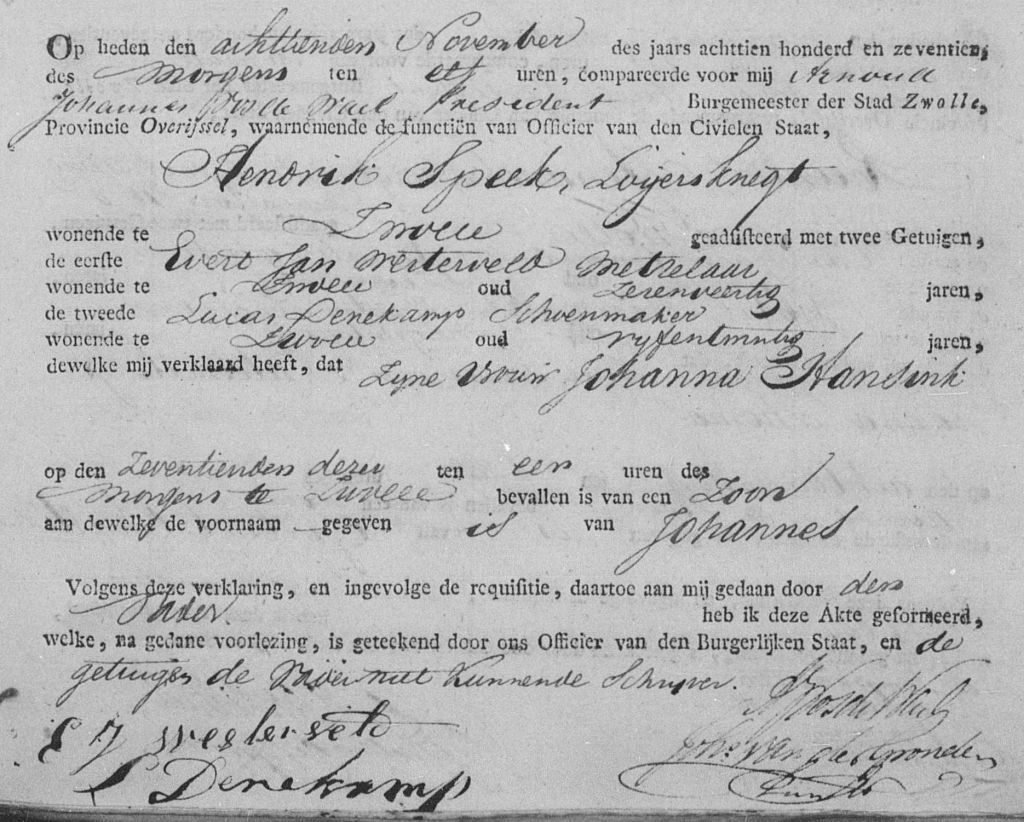 Op heden den achttienden November des jaars achttien honderd en zeventien,
des Morgens ten elf uren, compareerde voor mij Arnoud
Johannes Vos de Wael President Burgemeester der Stad Zwolle,
Provincie Overijssel, waarnemende de functiën van Officier van den Civielen Staat,
Hendrik Speek, Loijersknegt
wonende te Zwolle geadsisteerd met twee Getuigen,
de eerste Evert Jan Westerveld Metzelaar
wonende te Zwolle oud Zevenveertig jaren,
de tweede Lucas Denekamp Schoenmaker
wonende te Zwolle oud vyfentwintig jaren,
dewelke mij verklaard heeft, dat Zyne Vrouw Johanna Hansink
op den Zeventienden dezer ten een uren des
Morgens te Zwolle bevallen is van een Zoon
aan dewelke de voornaam gegeven is van Johannes
Volgens deze verklaring, en ingevolge de requisitie, daartoe aan mij gedaan door den
Vader. heb ik deze Akte geformeerd,
welke, na gedane voorlezing, is geteekend door ons Officier van den Burgerlijken Staat, en de
getuigen de Vader niet Kunnende Schryven.
A J Vos de Wael
E J Westerveld
Joh.s van der Gronden
L Denekamp